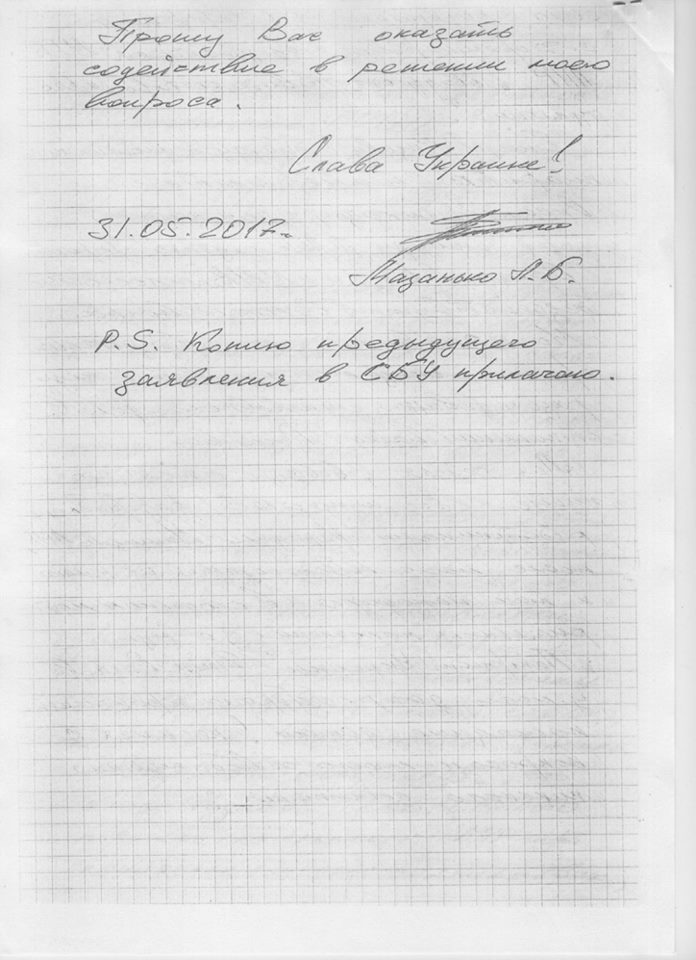 Прошу Вас оказать
содействие в решении моего
вопроса.
Слава Украине!
31.05.2017г.
Мазанько Л.Б.
P.S. Копию предыдущего
заявления в СБУ прилагаю.